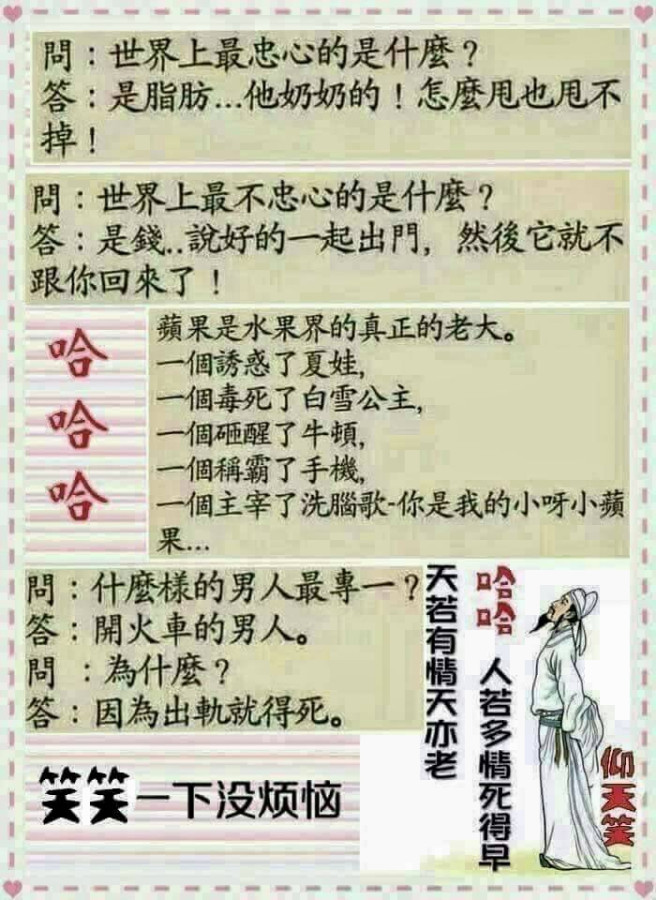 問：世界上最忠心的是什麼？
答：是脂肪...他奶奶的！怎麼甩也甩不
掉！
問：世界上最不忠心的是什麼？
答：是錢..說好的一起出門，然後它就不
跟你回來了！
哈
哈
哈
蘋果是水果界的真正的老大。
一個誘惑了夏娃,
一個毒死了白雪公主,
一個砸醒了牛頓,
一個稱霸了手機,
一個主宰了洗腦歌-你是我的小呀小蘋
果...
問：什麼樣的男人最專一？
答：開火車的男人。
問 ：為什麼？
答：因為出軌就得死。
天若有情天亦老
哈哈 人若多情死得早
仰天笑
笑笑一下没烦恼